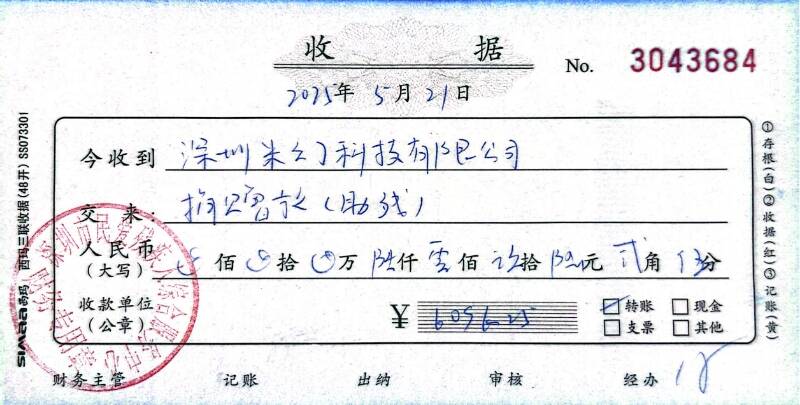 收 据
No. 3043684
2025年5月21日
今收到 深圳科技有限公司
交 来: 捐赠款(助残)
人民币(大写) 佰 拾 万 陆仟 零佰 玖拾 陆元 贰角 伍分
收款单位(公章) ¥ 6096.25 ☑转账 □现金 □支票 □其他
财务主管 记账 出纳 审核 经办
①存根(白)②收据(红)③记账(黄)
simaa西玛 西玛三联收据(48开) SS073301
深圳市民爱残疾人综合服务中心
财务专用章